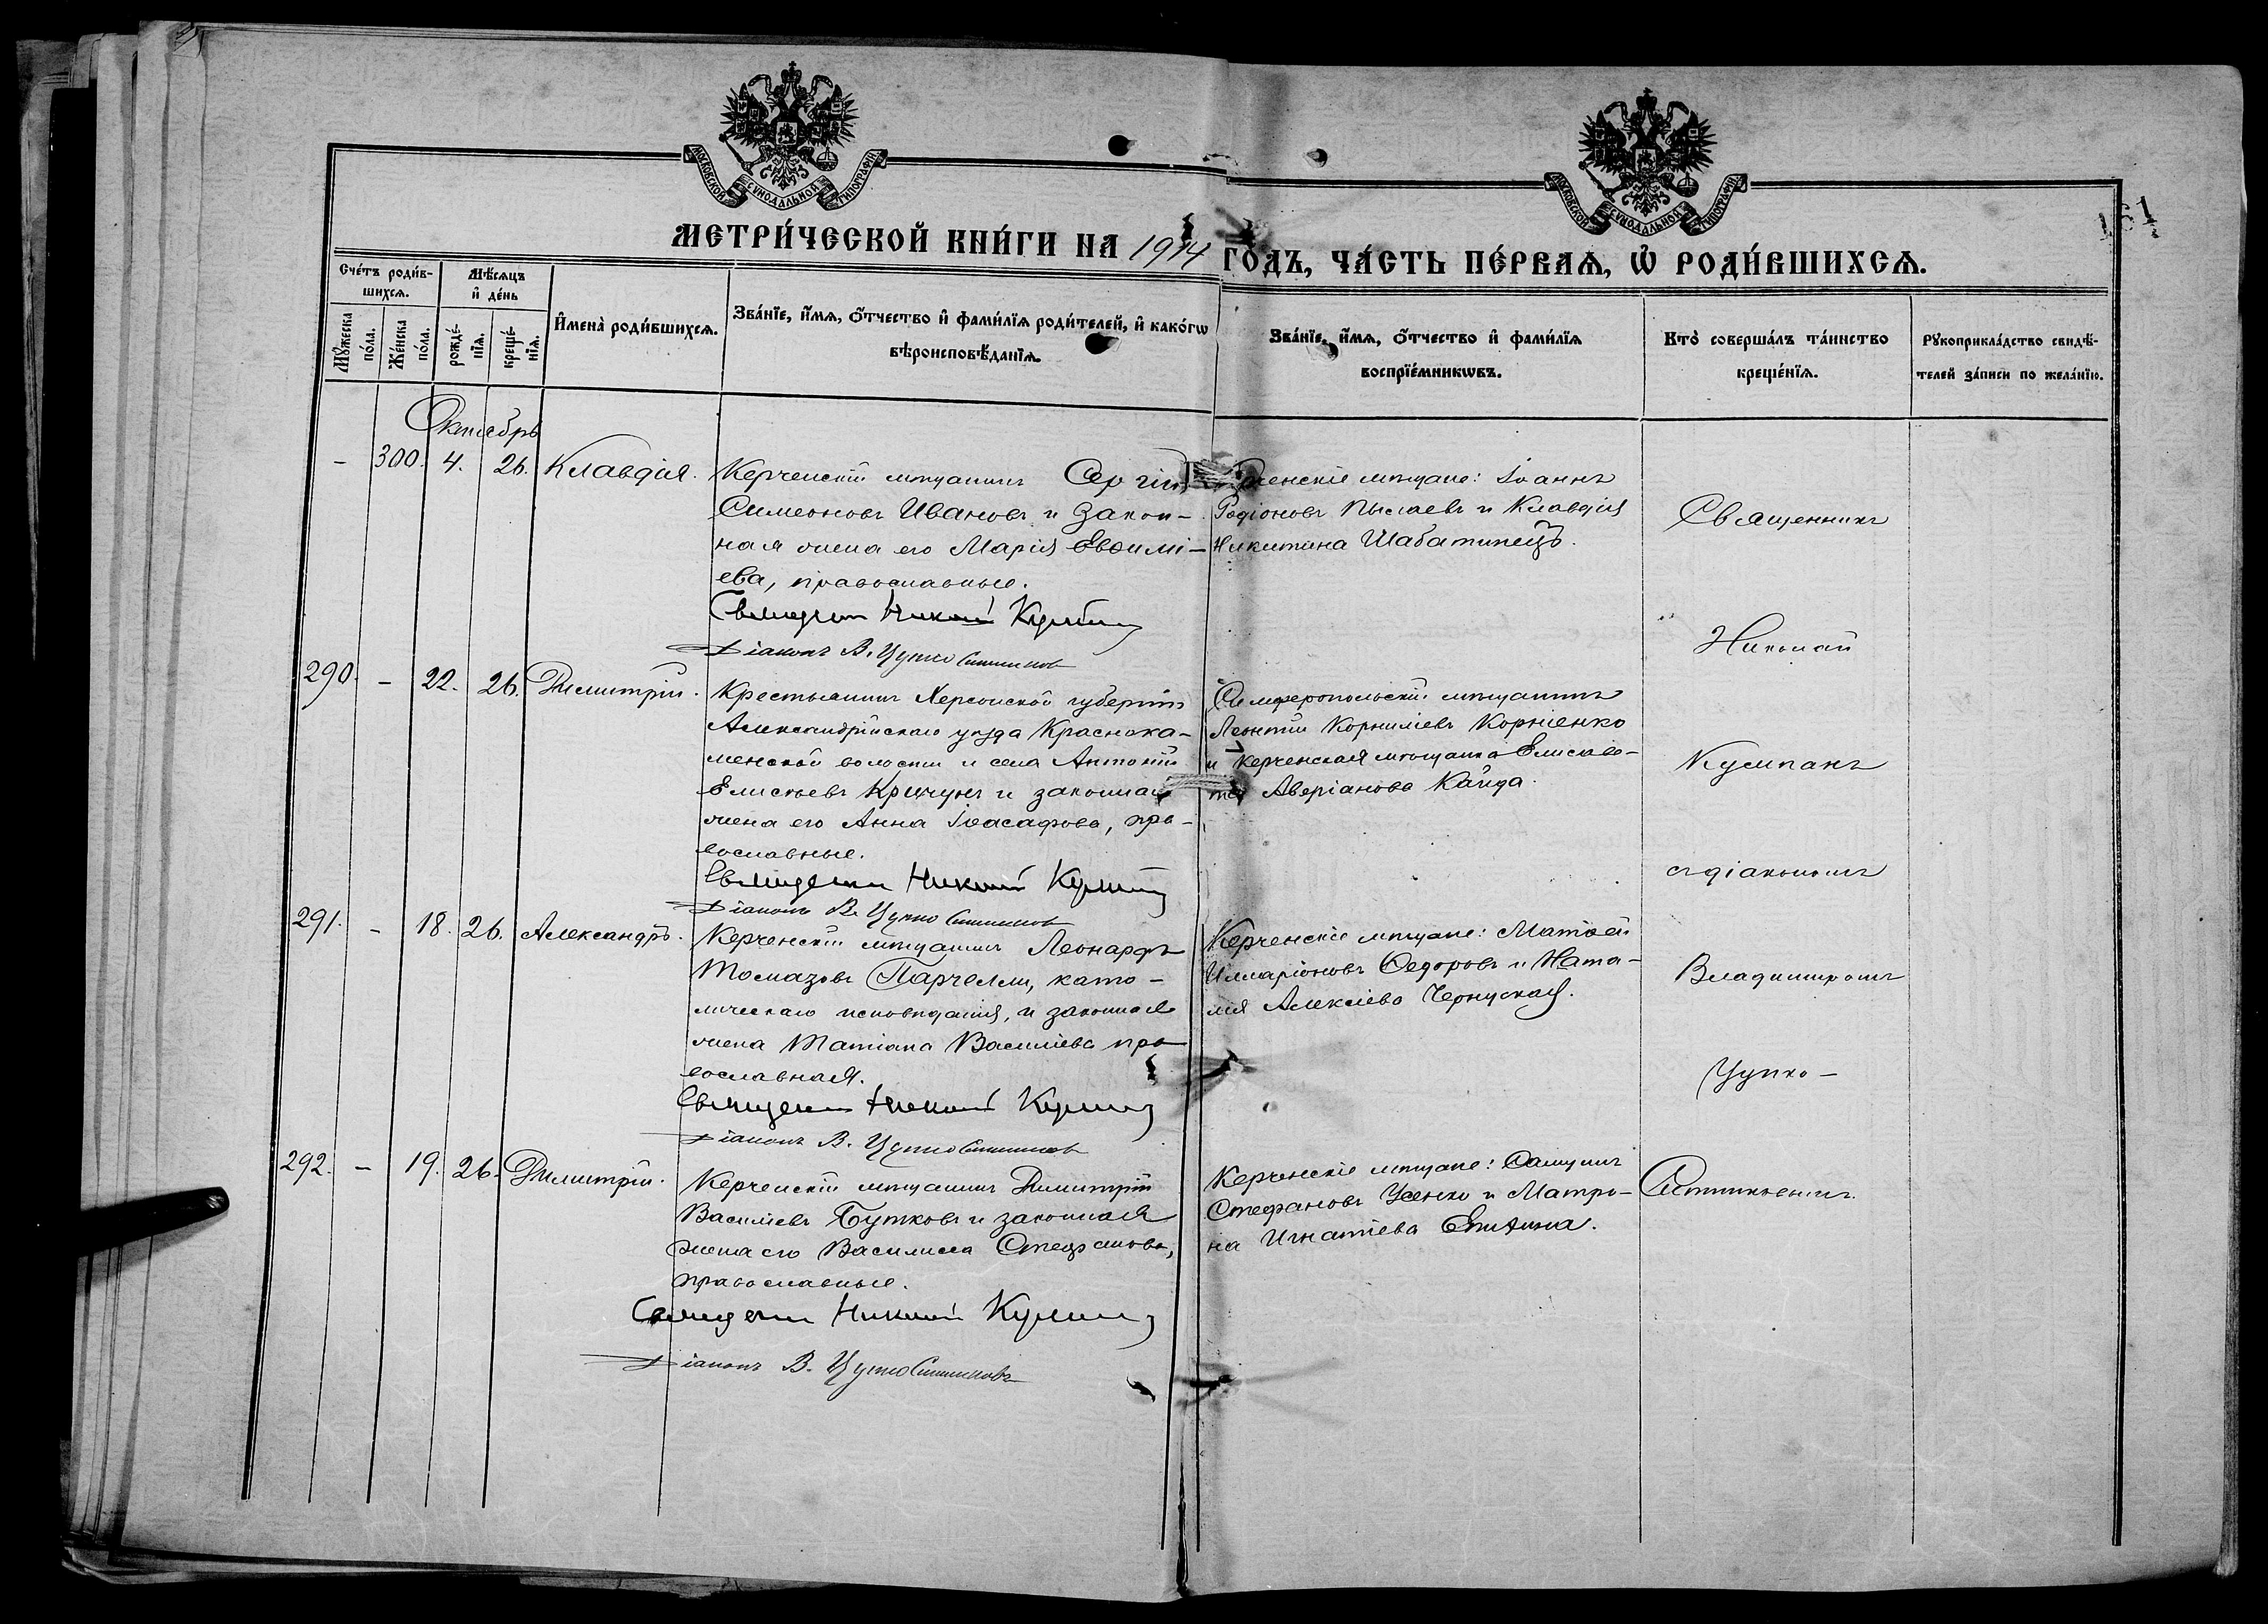 МОСКОВСКОЙ СУНОДАЛЬНОЙ ТИПОГРАФІИ
МОСКОВСКОЙ СУНОДАЛЬНОЙ ТИПОГРАФІИ
МЕТРИ́ЧЕСКОЙ КНИ́ГИ НА 1914 ГОДЪ, ЧА́СТЬ ПЕ́РВАѦ, Ѡ РОДИ́ВШИХСѦ.
Сче́тъ роди́в-
шихсѧ.
Мꙋжеска по́ла.
Же́нска по́ла.
Мѣ́сѧцъ
и де́нь
рожде́-
нїѧ.
креще́-
нїѧ.
Имена̀ роди́вшихсѧ.
Зва́нїе, и́мѧ, о́тчество и фами́лїѧ роди́телей, и како́гѡ
вѣроисповѣ́данїѧ.
Зва́нїе, и́мѧ, о́тчество и фами́лїѧ
воспрїе́мникѡвъ.
Кто̀ соверша́лъ та́инство
креще́нїѧ.
Рꙋкоприкла́дство свидѣ́-
телей за́писи по жела́нїю.
Октябрь
– 300. 4. 26. Клавдія.
Керченскій мѣщанинъ Сергій
Симеоновъ Ивановъ и закон-
ная жена его Марія Евѳимі-
ева, православные.
Священникъ Николай
Діаконъ В. Цупко Ситниковъ
Керченскіе мѣщане: Іоаннъ
Родіоновъ и Клавдія
Никитина Шабатинецъ.
290. – 22. 26. Димитрій.
Крестьянинъ Херсонской губерніи
Александрійскаго уѣзда Краснока-
менской волости и села Антоній
Елисѣевъ Кричунъ и законная
жена его Анна Іоасафова, пра-
вославные.
Священникъ Николай
Діаконъ В. Цупко Ситниковъ
Симферопольскій мѣщанинъ
Леонтій Корниліевъ Корніенко
и Керченская мѣщанка Елисаве-
та Аверіанова Кайда.
291. – 18. 26. Александръ.
Керченскій мѣщанинъ Леонардъ
Томазовъ Парчелли, като-
лическаго исповѣданія, и законная
жена Татіана Василіева пра-
вославная.
Священникъ Николай
Діаконъ В. Цупко Ситниковъ
Керченскіе мѣщане: Матѳей
Илларіоновъ Ѳедоровъ и Ната-
лія Алексіева
292. – 19. 26. Димитрій.
Керченскій мѣщанинъ Димитрій
Василіевъ Бутковъ и законная
жена его Василисса Стефанова,
православные.
Священникъ Николай
Діаконъ В. Цупко Ситниковъ
Керченскіе мѣщане: Самуилъ
Стефановъ Усенко и Матро-
на Игнатіева
Священникъ
Николай
съ діакономъ
Владиміромъ
Цупко –